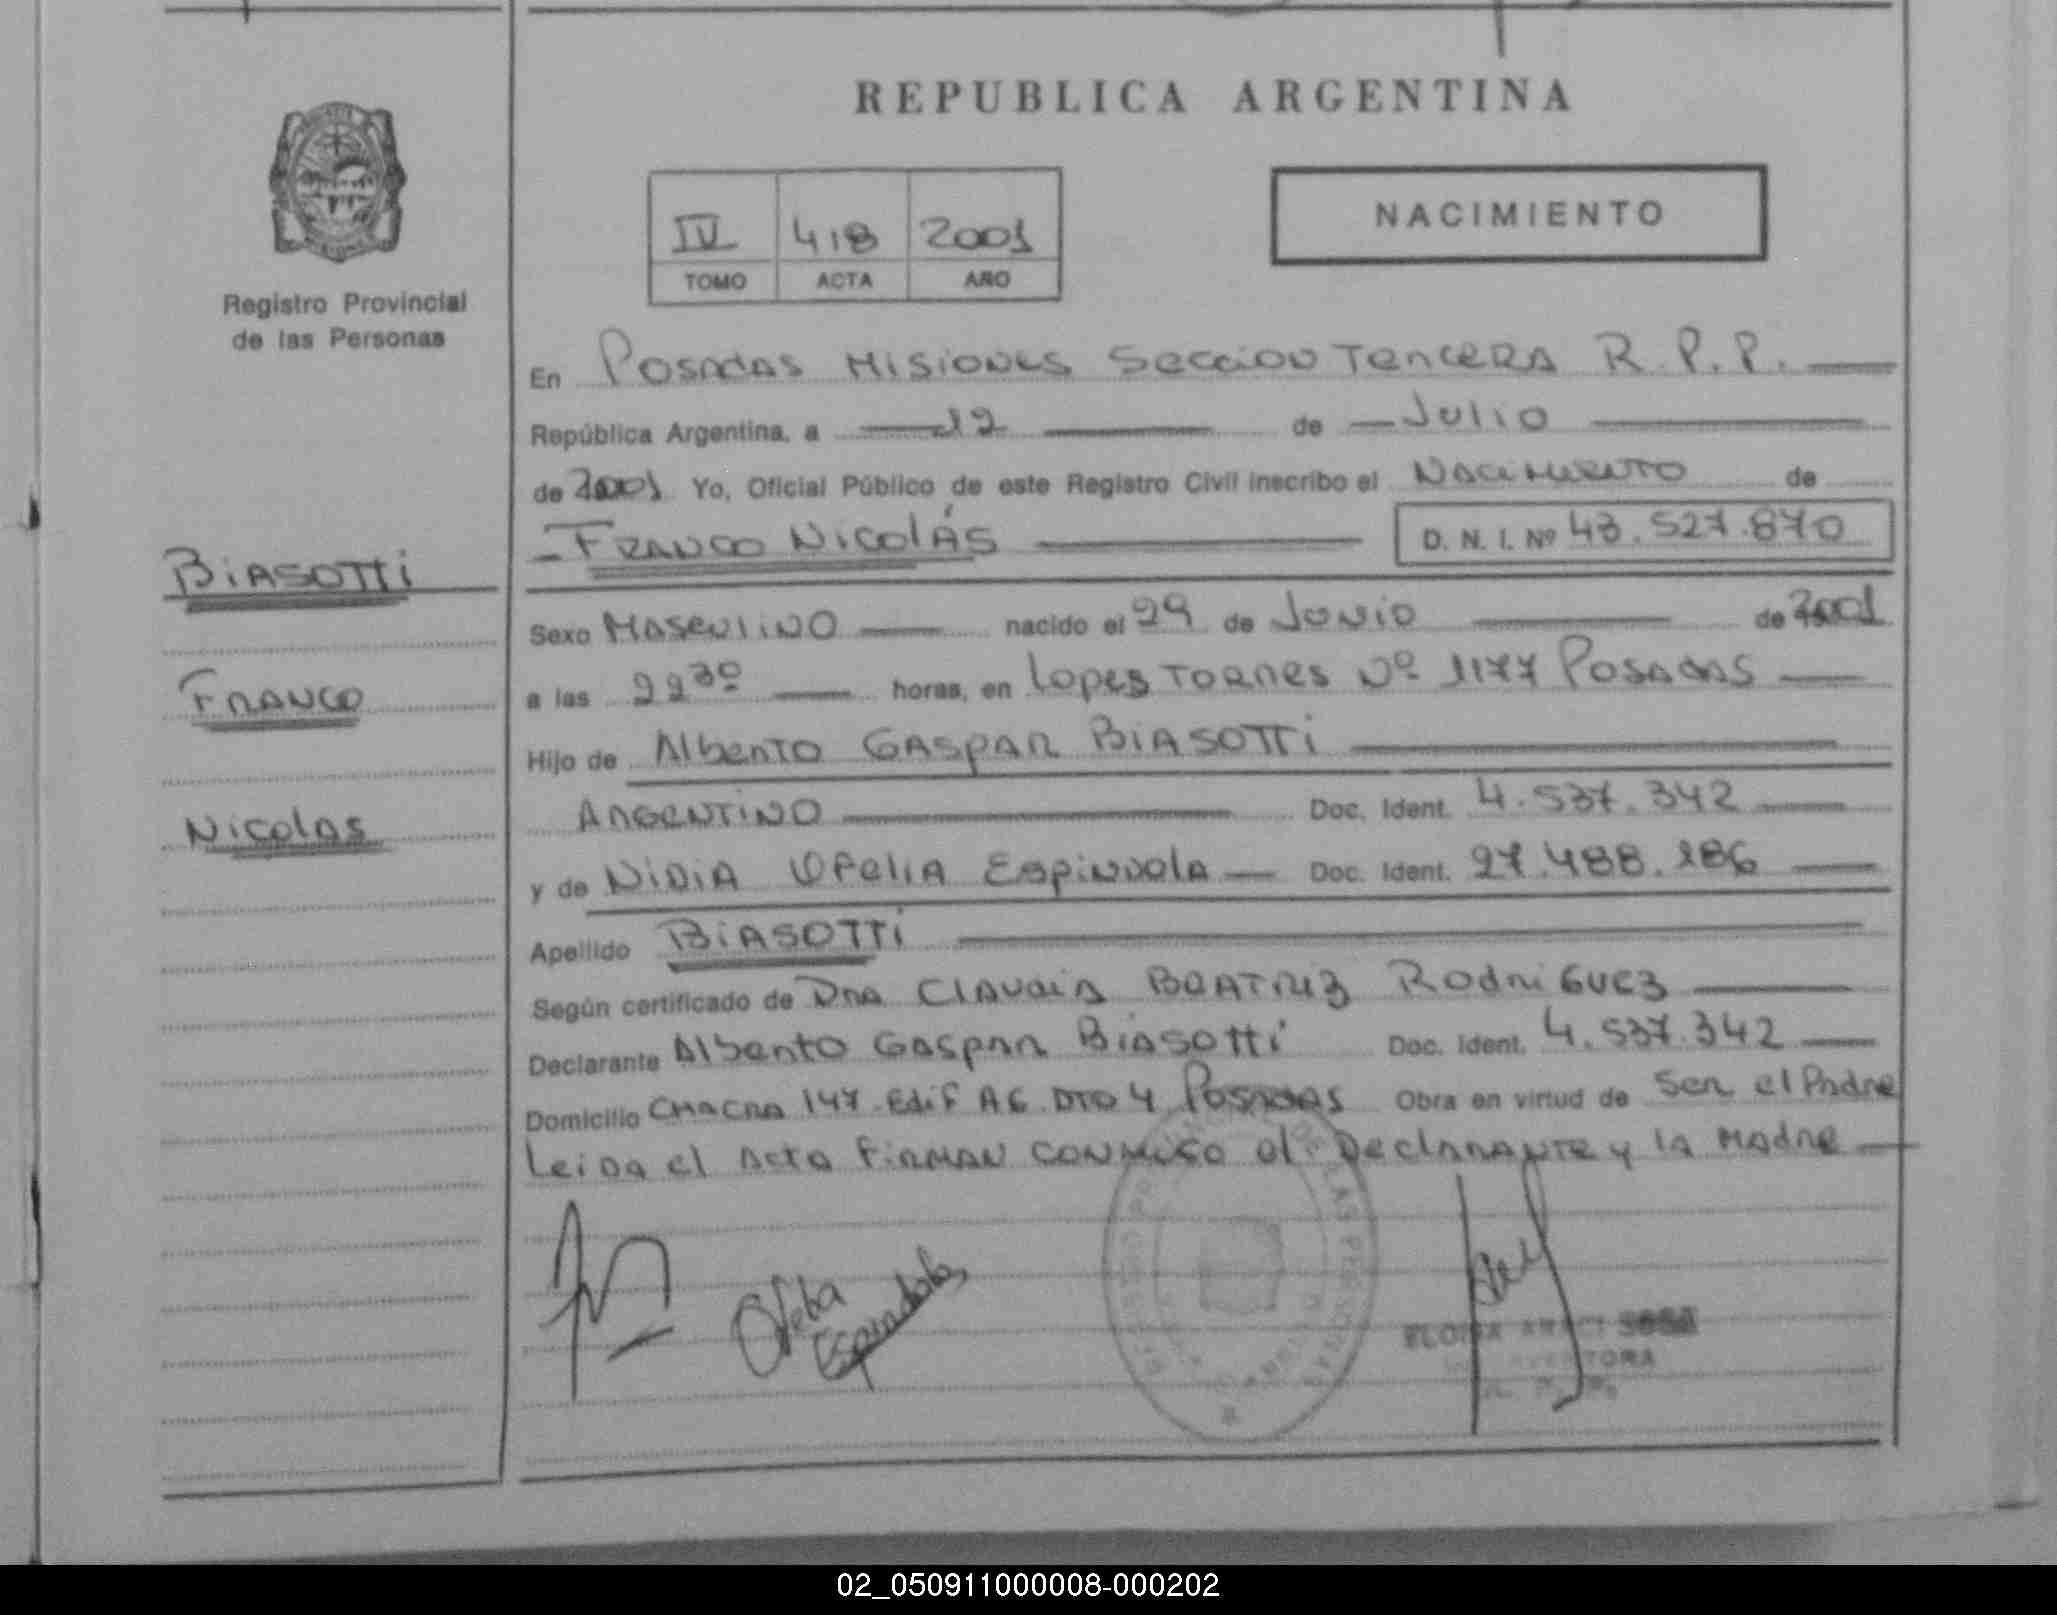 REPUBLICA ARGENTINA
NACIMIENTO
IV 418 2001
TOMO ACTA AÑO
Registro Provincial
de las Personas
En Posadas Misiones Seccion Tercera R.P.P.
República Argentina, a 12 de Julio
de 2001 Yo, Oficial Público de este Registro Civil inscribo el Nacimiento de
Franco Nicolás D. N. I. Nº 43.527.870
Biasotti
Sexo Masculino nacido el 29 de Junio de 2001
a las 22 30 horas, en Lopes Torres Nº 1177 Posadas
Franco
Hijo de Alberto Gaspar Biasotti
Nicolas
Argentino Doc. Ident. 4.537.342
y de Nidia Ofelia Espindola Doc. Ident. 27.488.186
Apellido Biasotti
Según certificado de Dra Claudia Beatriz Rodriguez
Declarante Alberto Gaspar Biasotti Doc. Ident. 4.537.342
Domicilio Chacra 147 Edif A6 Dto 4 Posadas Obra en virtud de Ser el Padre
Leida el Acta Firman conmigo el Declarante y la Madre
Ofelia
Espindola
02_050911000008-000202